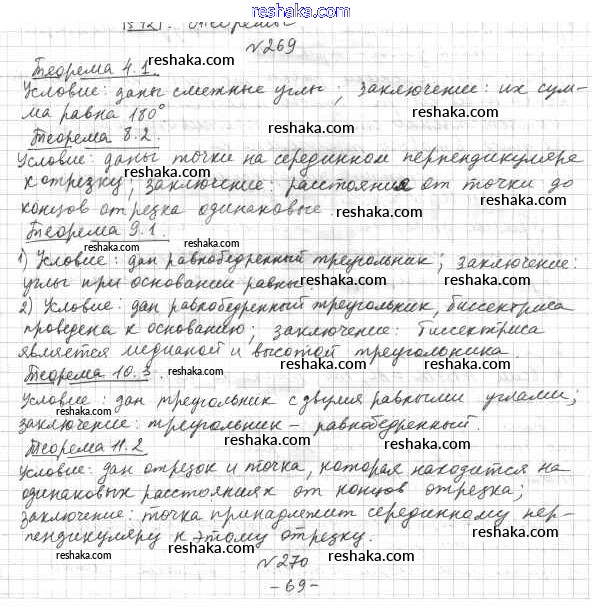 reshaka.com
§ 12. Теоремы
№ 269
Теорема 4.1.
Условие: даны смежные углы; заключение: их сум-
ма равна 180°
Теорема 8.2.
Условие: даны точки на серединном перпендикуляре
к отрезку; заключение: расстояния от точки до
концов отрезка одинаковые.
Теорема 9.1.
1) Условие: дан равнобедренный треугольник; заключение:
углы при основании равны.
2) Условие: дан равнобедренный треугольник, биссектриса
проведена к основанию; заключение: биссектриса
является медианой и высотой треугольника.
Теорема 10.3
Условие: дан треугольник с двумя равными углами;
заключение: треугольник - равнобедренный.
Теорема 11.2
Условие: дан отрезок и точка, которая находится на
одинаковых расстояниях от концов отрезка;
заключение: точка принадлежит серединному пер-
пендикуляру к этому отрезку.
№ 270
- 69 -